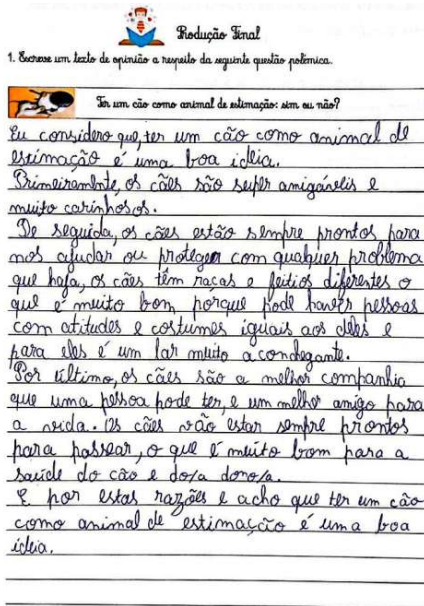 Produção Final
1. Escreve um texto de opinião a respeito da seguinte questão polémica.
Ter um cão como animal de estimação: sim ou não?
Eu considero que, ter um cão como animal de
estimação é uma boa ideia.
Primeiramente, os cães são super amigáveis e
muito carinhosos.
De seguida, os cães estão sempre prontos para
nos ajudar ou proteger com qualquer problema
que haja, os cães têm raças e feitios diferentes o
que é muito bom, porque pode haver pessoas
com atitudes e costumes iguais aos deles e
para eles é um lar muito acondegante.
Por último, os cães são a melhor companhia
que uma pessoa pode ter, e um melhor amigo para
a vida. Os cães vão estar sempre prontos
para passear, o que é muito bom para a
saúde do cão e do/a dono/a.
E por estas razões e acho que ter um cão
como animal de estimação é uma boa
ideia.